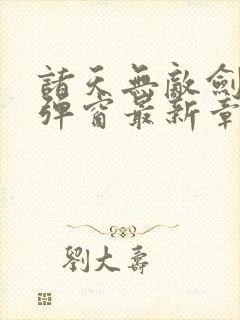 諸天無敵劍
彈窗最新章
劉大壽